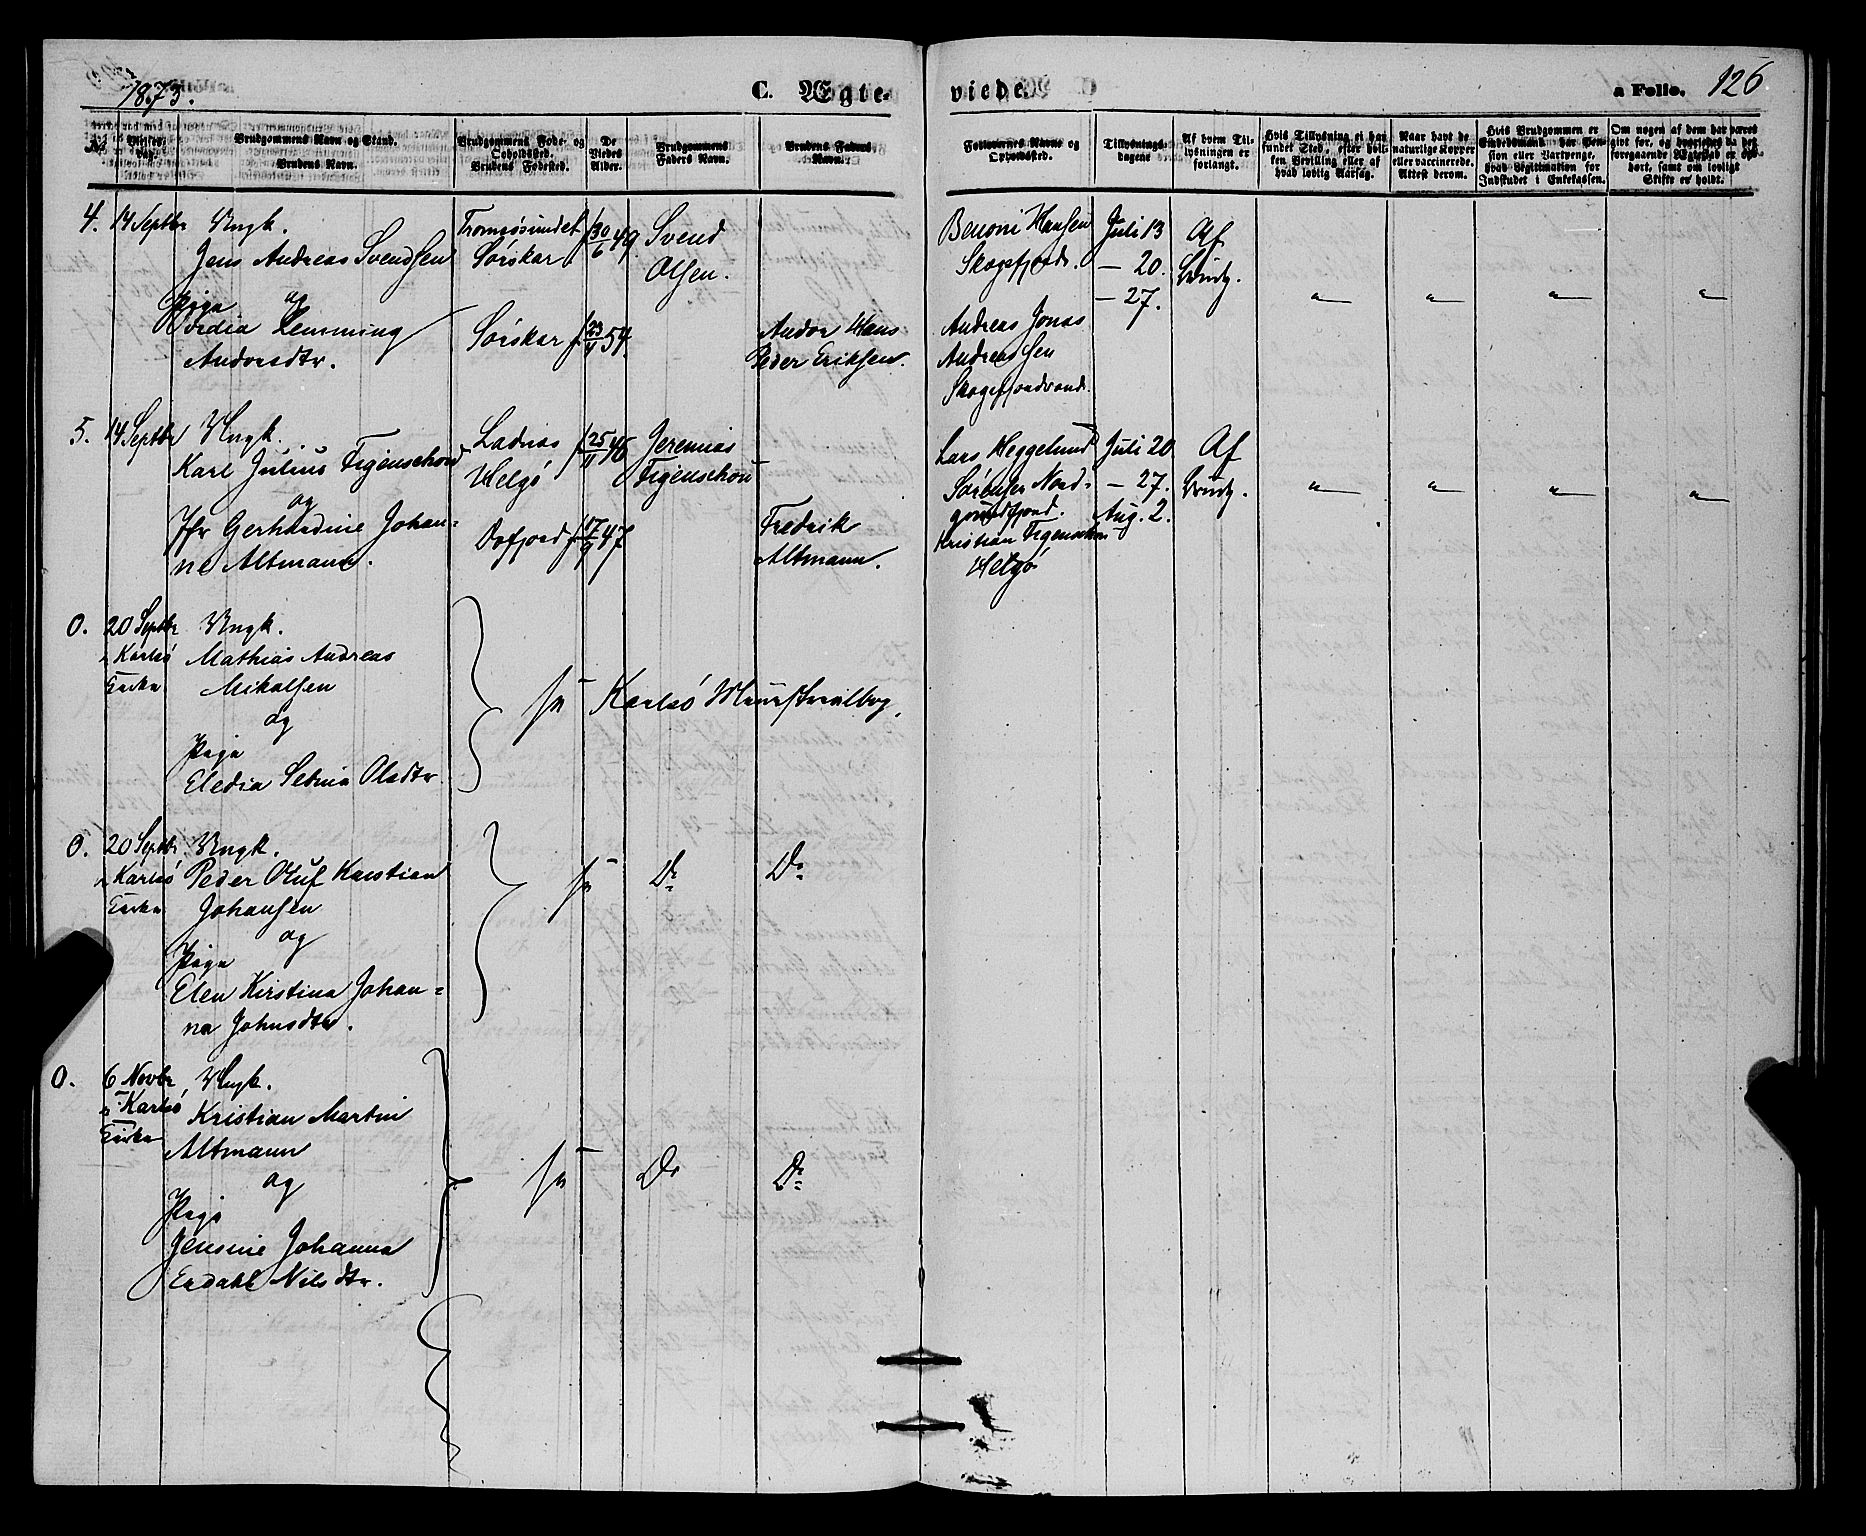 1873.
C. Ægte-
viede.
a Folio. 126
No.
Vielses-
dag.
Brudgommens Navn og Stand.
Brudens Navn.
Brudgommens Føde- og
Opholdssted.
Brudens Fødested.
De
Viedes
Alder.
Brudgommens
Faders Navn.
Brudens Faders
Navn.
Forlovernes Navne og
Opholdssted.
Tillysnings-
dagene
Af hvem Til-
lysningen er
forlangt.
Hvis Tillysning ei har
fundet Sted, efter hvil-
ken Bevilling eller af
hvad lovlig Aarsag.
Naar havt de
naturlige Kopper
eller vaccinerede.
Attest derom.
Hvis Brudgommen er
Embedsmand, har Pen-
sion eller Vartpenge,
hvad Legitimation for
Indskudet i Enkekassen.
Om nogen af dem har været
givt før, og hvorledes da det
foregaaende Ægteskab er op-
hørt, samt om lovligt
Skifte er holdt.
4. 14 Septbr Ungk.
Jens Andreas Svendsen
og
Pige
Lemming
Andorsdtr.
Tromsøsundet
Sørskar f 30/6 49.
Sørskar f 23/4 54.
Svend
Olsen.
Andor Hans
Peder Eriksen.
Benoni Hansen
Skogsfjord.
Andreas Jonas
Andreassen
Skogsfjordvand.
Juli 13
— 20.
— 27.
Af
Brudg.
" " " "
5. 14 Septbr Ungk.
Karl Julius Figenschou
og
Jfr Gerhardine Johan-
ne Altmann.
Helgø f 25/11 46
Dafjord f 17/9 47
Jeremias
Figenschou
Fredrik
Altmann.
Lars Heggelund
Sørensen Nord-
grundfjord.
Kristian Figenschou
Helgø
Juli 20
— 27.
Aug. 2.
Af
Brudg.
" " " "
0. 20 Septbr Ungk.
i Karlsø
Kirke
Mathias Andreas
Mikalsen
og
Pige
Eledia Oladtr.
se Karlsø Ministerialbog.
0. 20 Septbr Ungk.
i Karlsø
Kirke
Peder Oluf Kristian
Johansen
og
Pige
Elen Kirstina Johan-
na Johnsdtr.
se Do Do
0. 6 Novbr Ungk.
i Karlsø
Kirke
Kristian Martin
Altmann
og
Pige
Jensine Johanna
Endahl Nilsdtr.
se Do Do